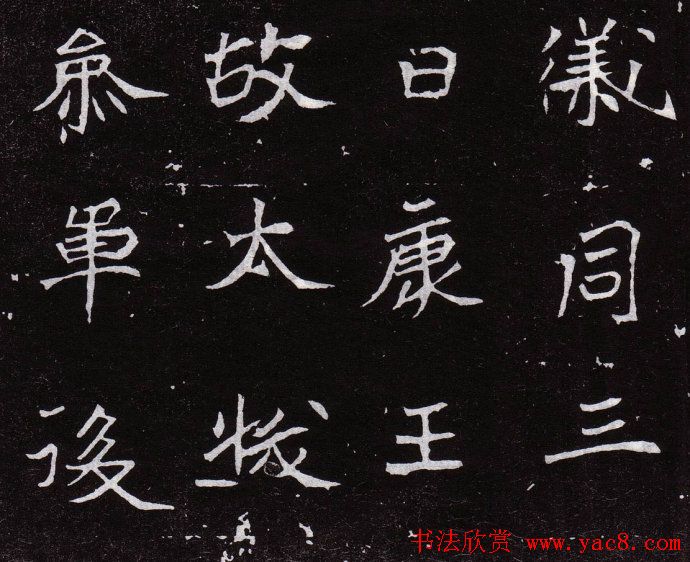 儀同三
曰康王
故太
參軍
书法欣赏 www.yac8.com